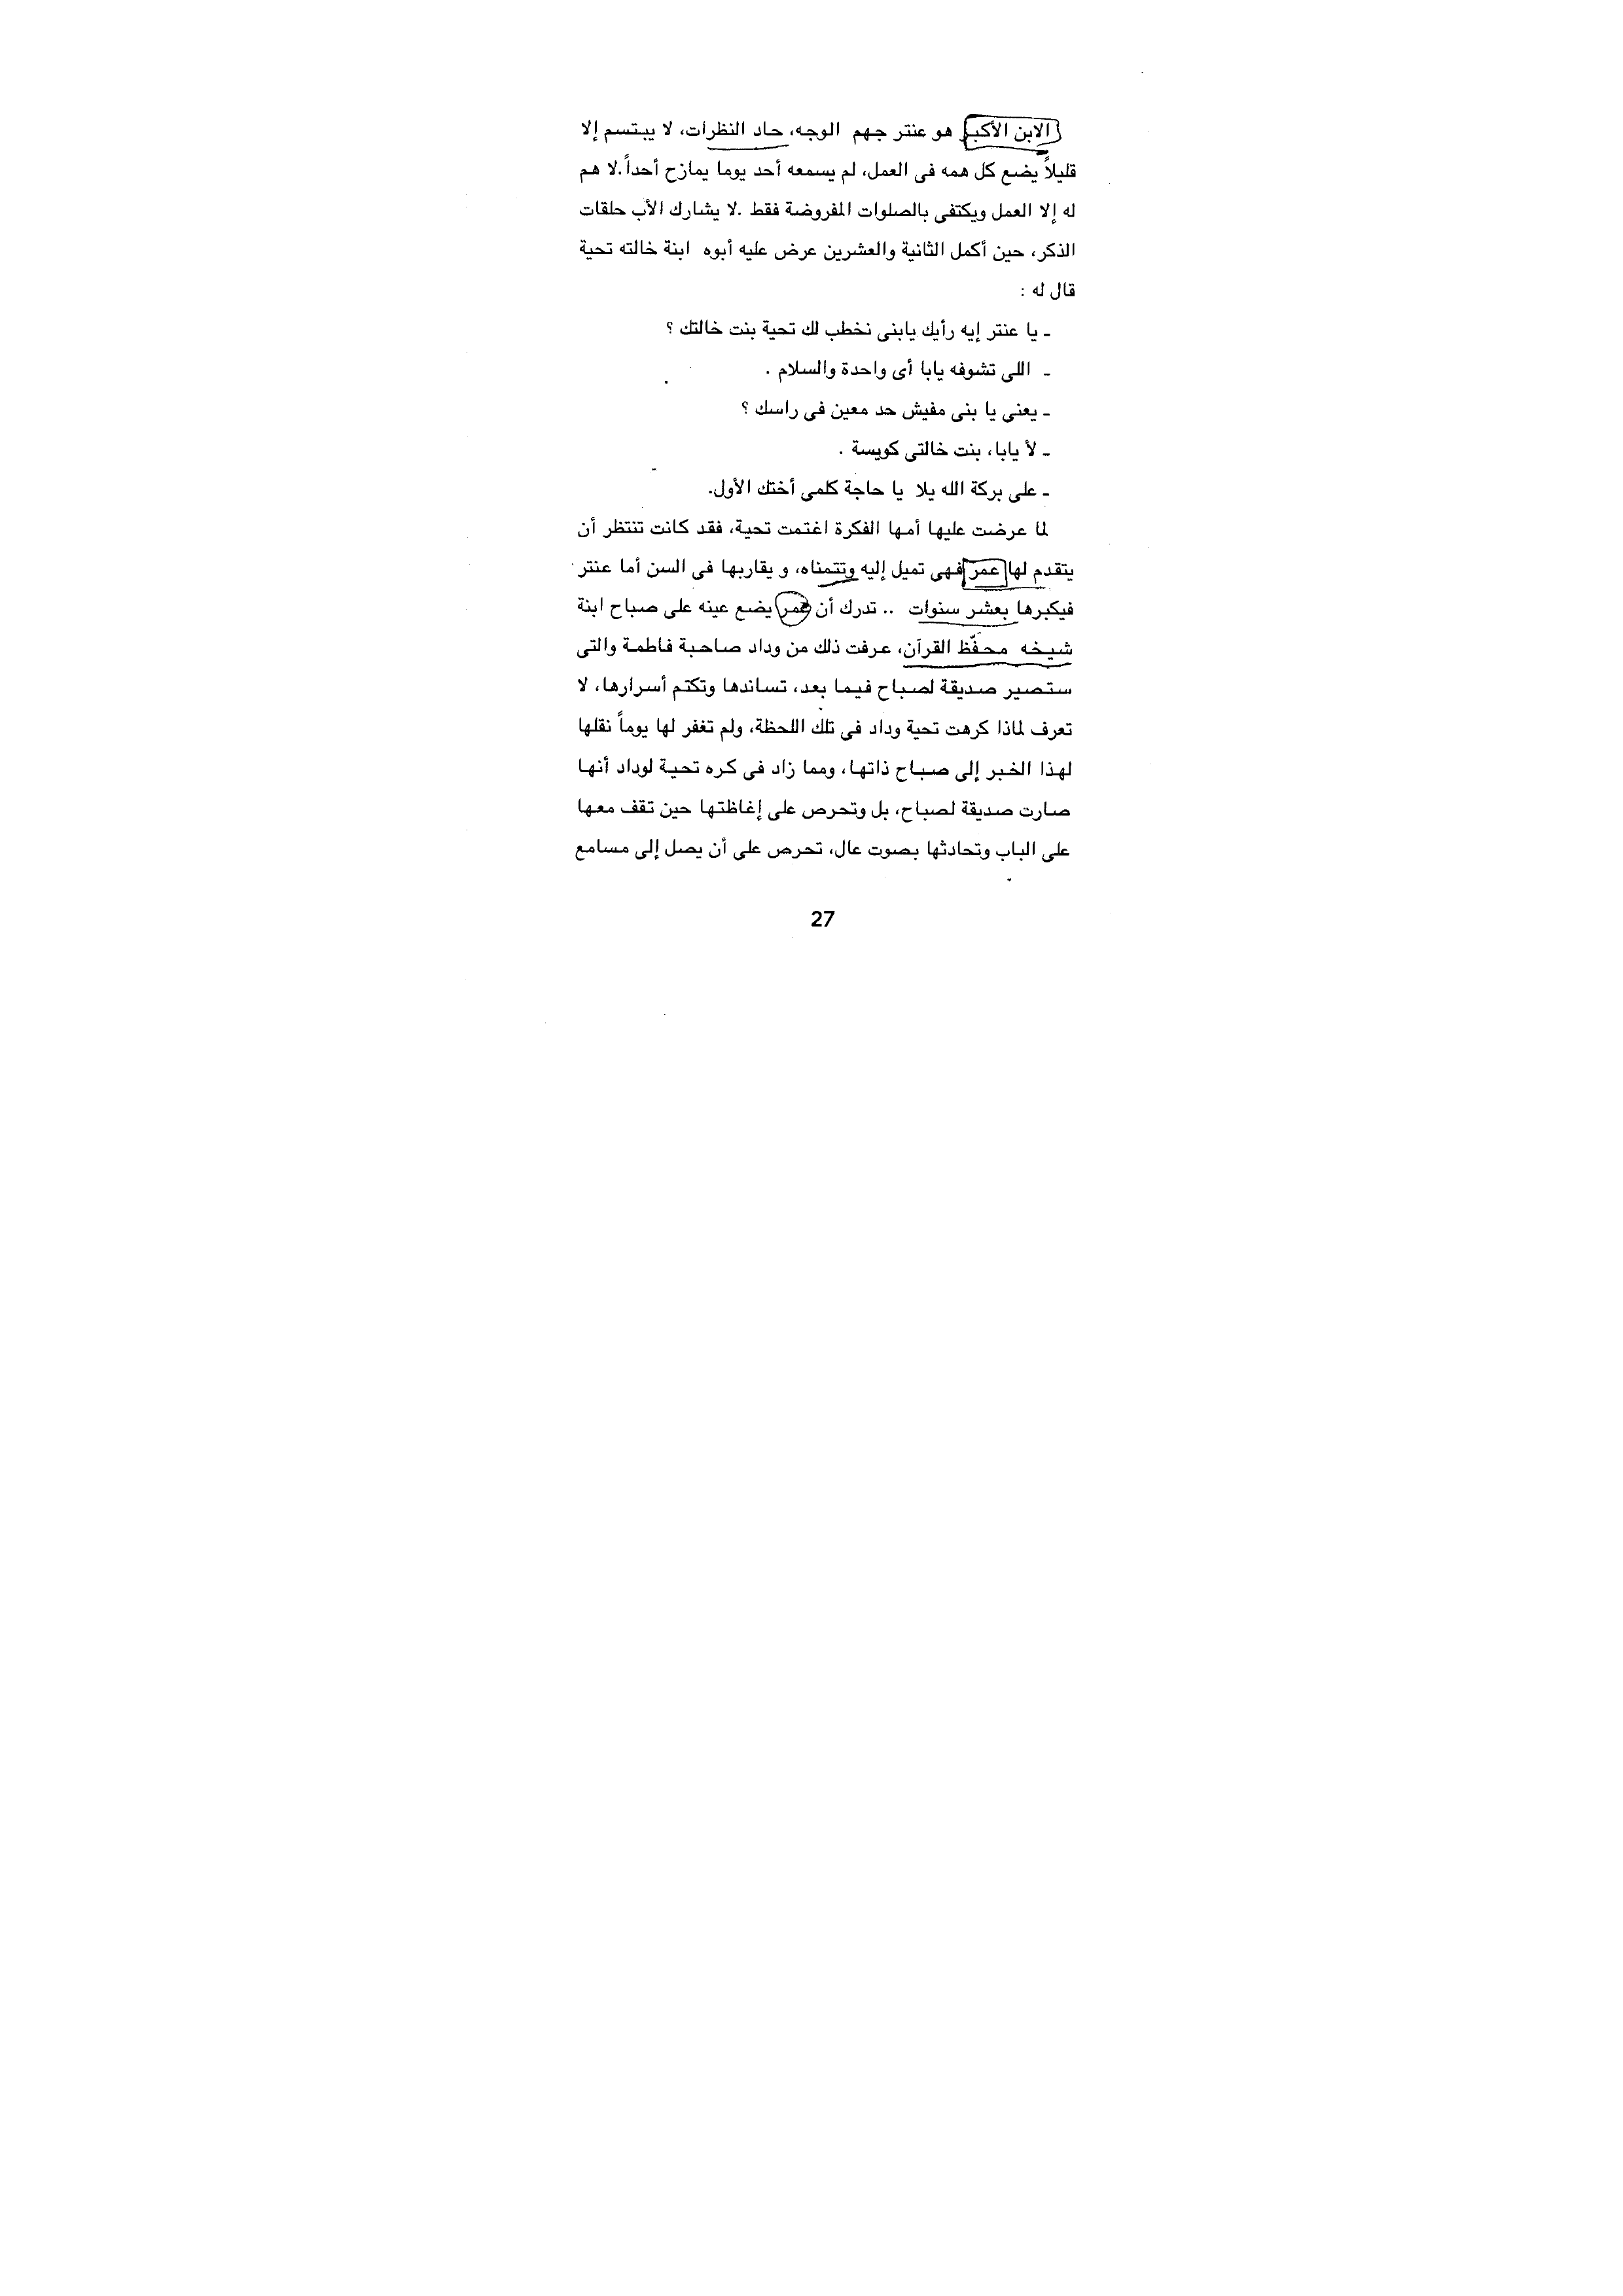 الابن الأكبر هو عنتر جهم الوجه، حاد النظرات، لا يبتسم إلا
قليلاً يضع كل همه فى العمل، لم يسمعه أحد يوما يمازح أحداً.لا هم
له إلا العمل ويكتفى بالصلوات المفروضة فقط .لا يشارك الأب حلقات
الذكر، حين أكمل الثانية والعشرين عرض عليه أبوه ابنة خالته تحية
قال له :
ـ يا عنتر إيه رأيك يابنى نخطب لك تحية بنت خالتك ؟
ـ اللى تشوفه يابا أى واحدة والسلام .
ـ يعنى يا بنى مفيش حد معين فى راسك ؟
ـ لأ يابا، بنت خالتى كويسة .
ـ على بركة الله يلا يا حاجة كلمى أختك الأول.
لما عرضت عليها أمها الفكرة اغتمت تحية، فقد كانت تنتظر أن
يتقدم لها عمر فهى تميل إليه وتتمناه، و يقاربها فى السن أما عنتر
فيكبرها بعشر سنوات .. تدرك أن عمر يضع عينه على صباح ابنة
شيخه محفّظ القرآن، عرفت ذلك من وداد صاحبة فاطمة والتى
ستصير صديقة لصباح فيما بعد، تساندها وتكتم أسرارها، لا
تعرف لماذا كرهت تحية وداد فى تلك اللحظة، ولم تغفر لها يوماً نقلها
لهذا الخبر إلى صباح ذاتها، ومما زاد فى كره تحية لوداد أنها
صارت صديقة لصباح، بل وتحرص على إغاظتها حين تقف معها
على الباب وتحادثها بصوت عال، تحرص على أن يصل إلى مسامع
27